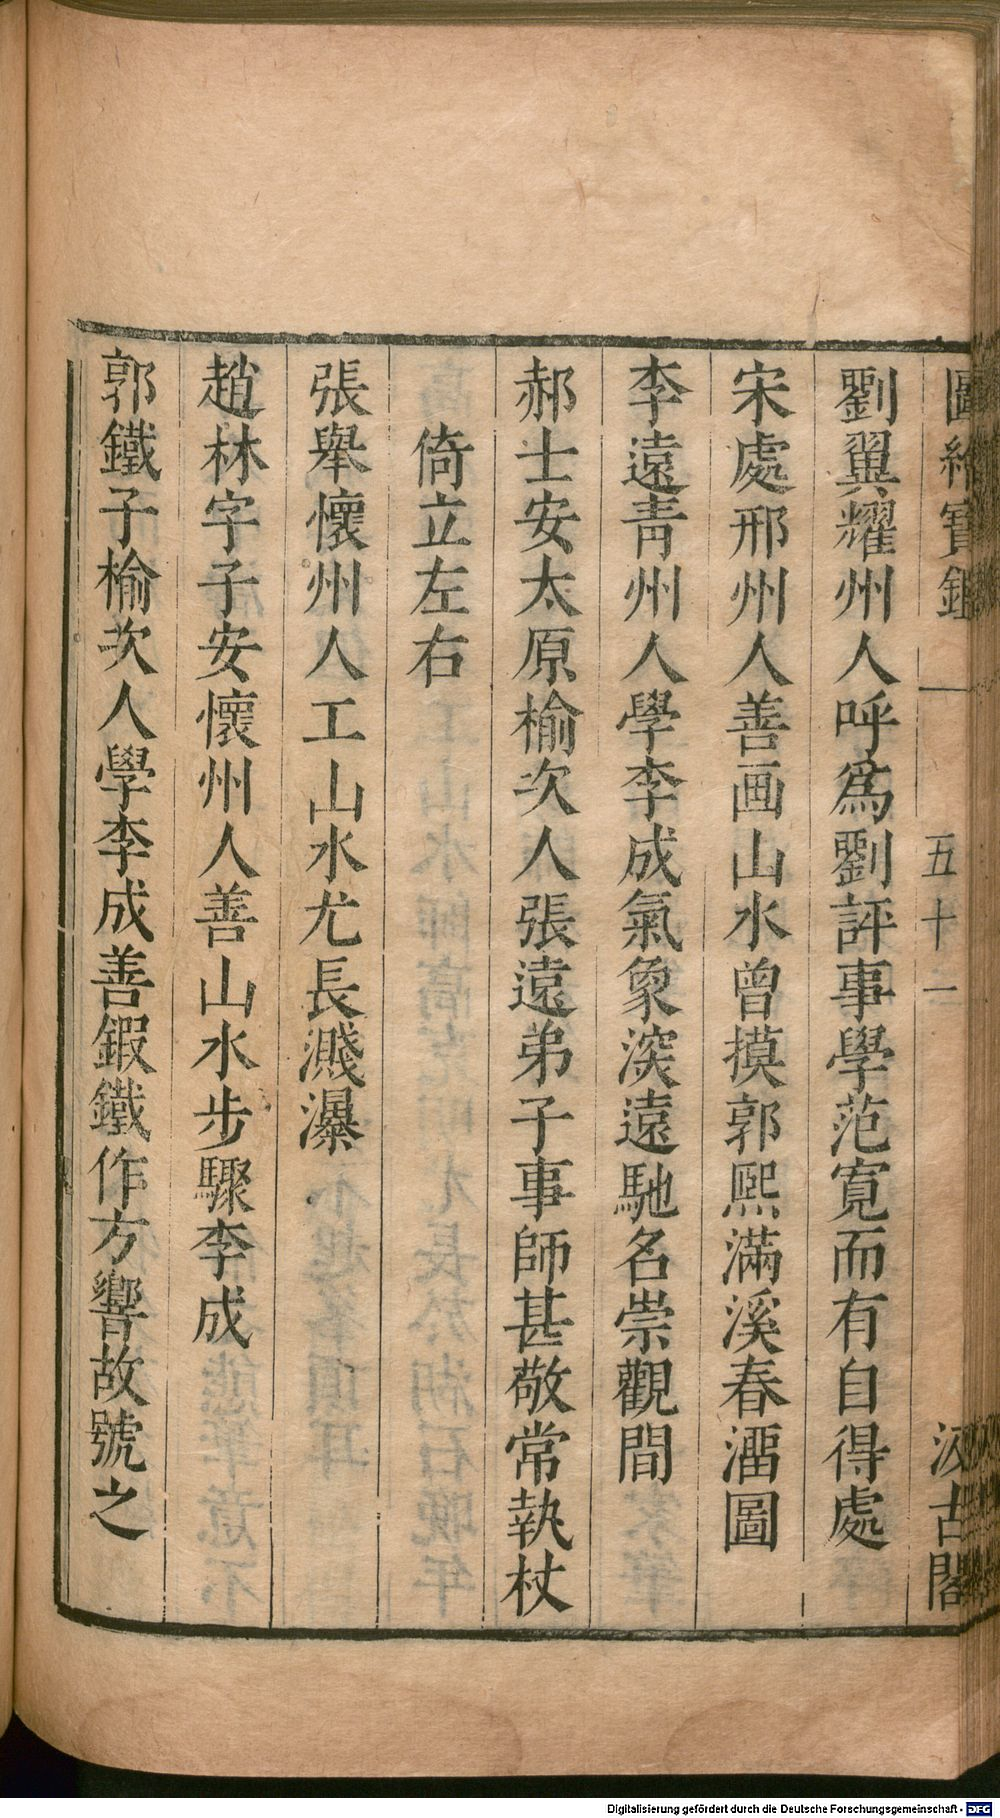 圖繪寶鑑
五十一
汲古閣
劉翼耀州人呼爲劉評事學范寬而有自得處
宋處邢州人善画山水曾摸郭熙滿溪春溜圖
李遠青州人學李成氣象深遠馳名崇觀間
郝士安太原榆次人張遠弟子事師甚敬常執杖
倚立左右
張舉懷州人工山水尤長濺瀑
趙林字子安懷州人善山水步驟李成
郭鐵子榆次人學李成善鍜鐵作方響故號之
Digitalisierung gefördert durch die Deutsche Forschungsgemeinschaft - DFG